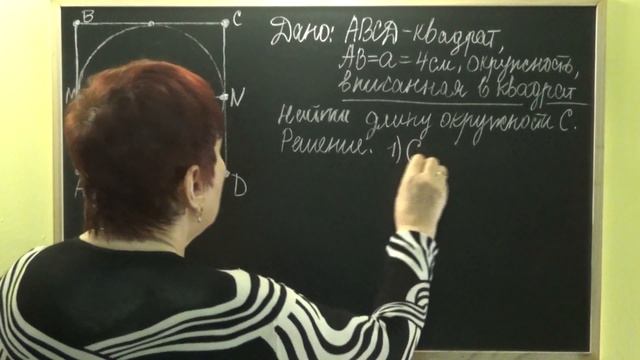 B
C
M
N
A
D
Дано: ABCD-квадрат,
AB=a=4см, окружность,
вписанная в квадрат
Найти длину окружности C.
Решение. 1) C